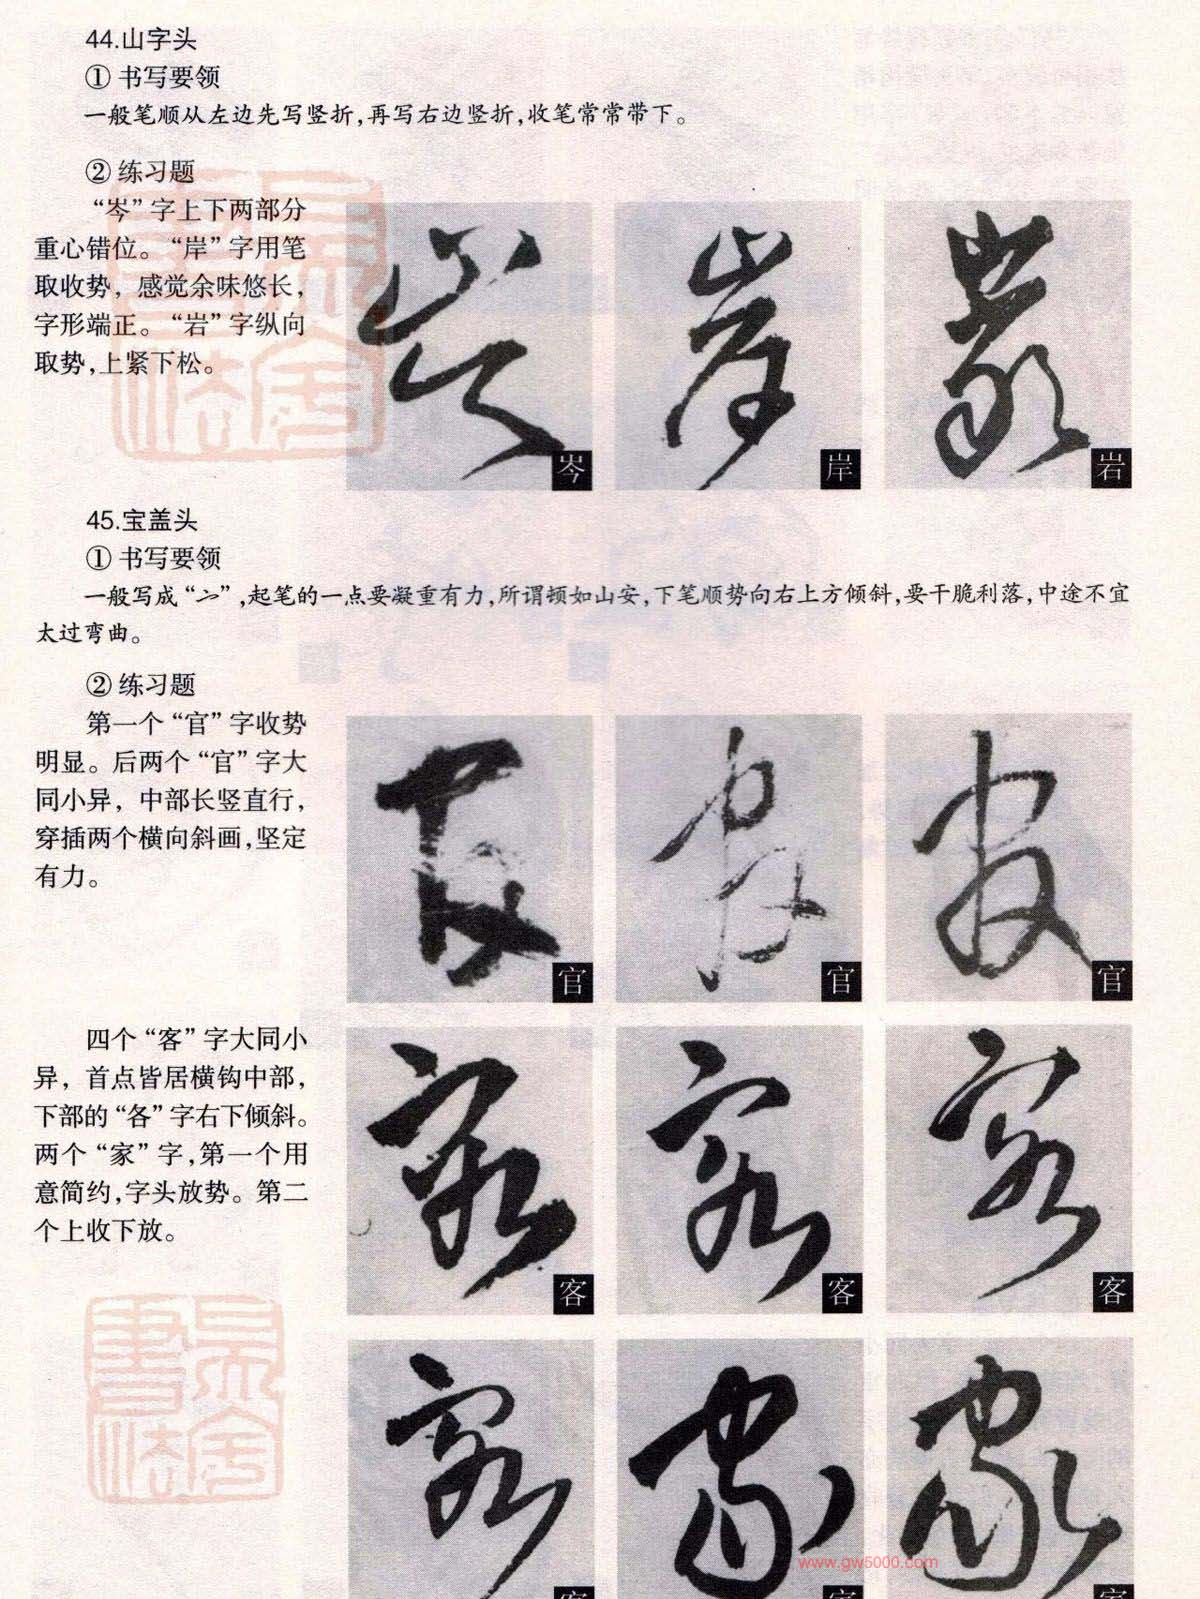 44.山字头
① 书写要领
一般笔顺从左边先写竖折,再写右边竖折,收笔常常带下。
② 练习题
“岑”字上下两部分
重心错位。“岸”字用笔
取收势，感觉余味悠长，
字形端正。“岩”字纵向
取势,上紧下松。
岑
岸
岩
45.宝盖头
① 书写要领
一般写成“宀”,起笔的一点要凝重有力,所谓顿如山安,下笔顺势向右上方倾斜,要干脆利落,中途不宜
太过弯曲。
② 练习题
第一个“官”字收势
明显。后两个“官”字大
同小异，中部长竖直行，
穿插两个横向斜画,坚定
有力。
官
官
官
四个“客”字大同小
异，首点皆居横钩中部，
下部的“各”字右下倾斜。
两个“家”字,第一个用
意简约,字头放势。第二
个上收下放。
客
客
客
www.gw5000.com